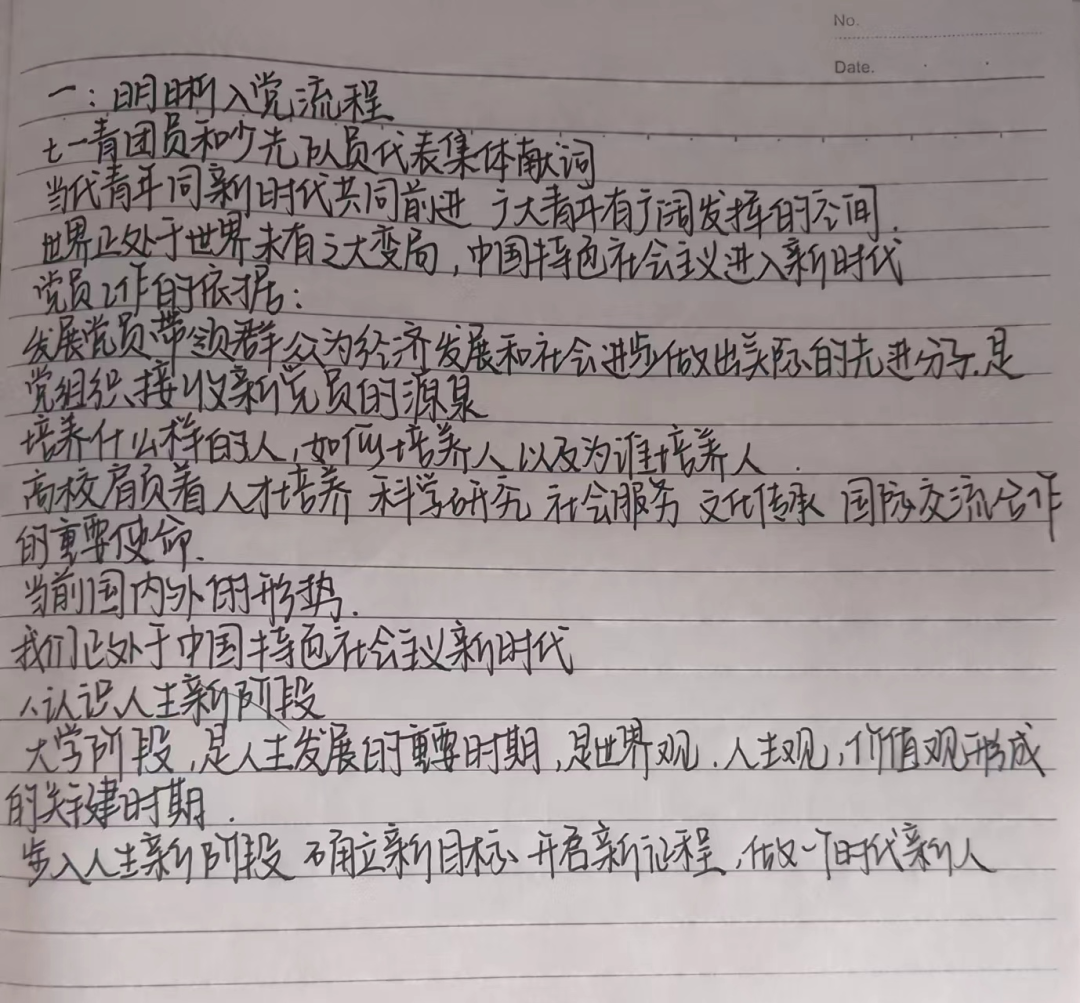 No.
Date.
一：明晰入党流程
七一青团员和少先队员代表集体献词
当代青年同新时代共同前进 广大青年有广阔发挥的空间.
世界正处于世界未有之大变局，中国特色社会主义进入新时代
党员工作的依据：
发展党员带领群众为经济发展和社会进步做出实际的先进分子.是
党组织接收新党员的源泉
培养什么样的人，如何培养人以及为谁培养人.
高校肩负着人才培养 科学研究 社会服务 文化传承 国际交流合作
的重要使命.
当前国内外的形势.
我们正处于中国特色社会主义新时代
认识人生新阶段
大学阶段，是人生发展的重要时期，是世界观.人生观，价值观形成
的关键时期.
步入人生新阶段 确立新目标 开启新征程，做一个时代新人